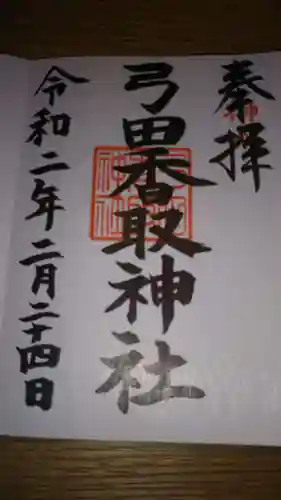 奉拝
弓田香取神社
令和二年二月二十四日